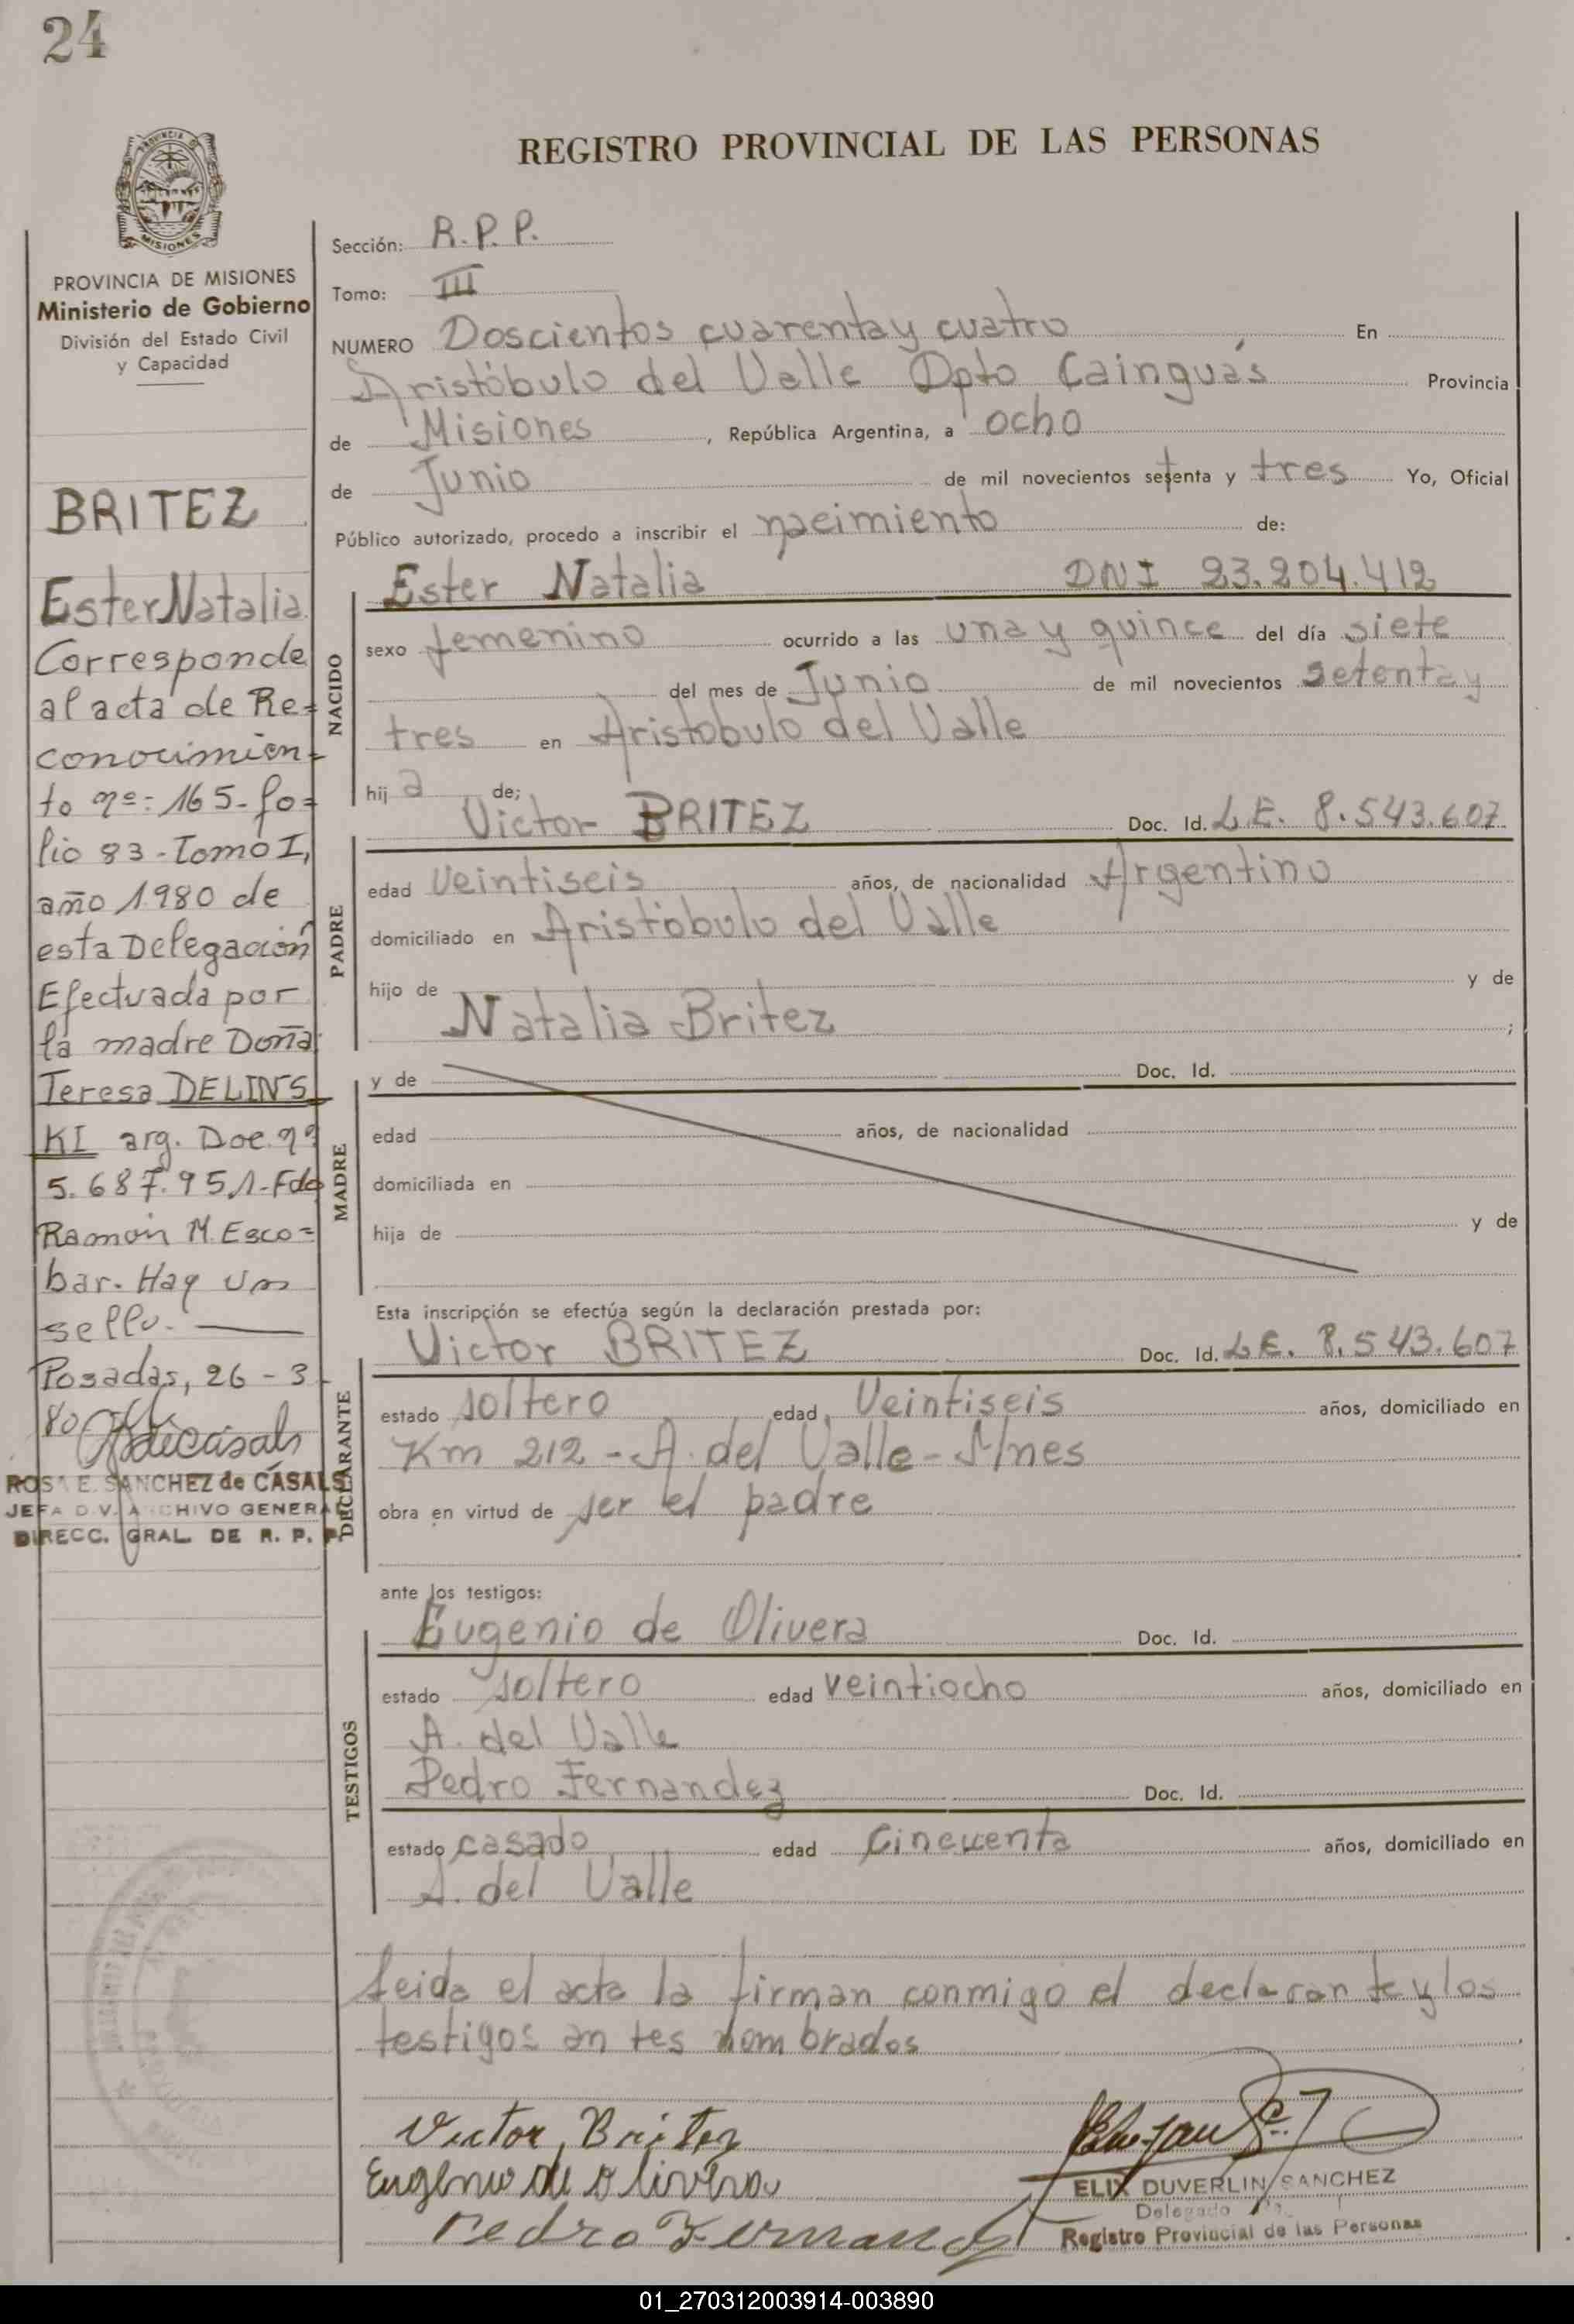 24
REGISTRO PROVINCIAL DE LAS PERSONAS
PROVINCIA
MISIONES
PROVINCIA DE MISIONES
Ministerio de Gobierno
División del Estado Civil
y Capacidad
BRITEZ
Ester Natalia
Corresponde
al acta de Re=
conocimien=
to nº: 165- fo=
lio 83 - Tomo I,
año 1980 de
esta Delegación
Efectuada por
la madre Doña
Teresa DELINS
KI arg. Doc. nº
5.687.951-Fdo
Ramón M. Esco=
bar. Hay un
sello.
Posadas, 26 - 3 -
80
ROSA E. SANCHEZ de CASALS
JEFA DIV. ARCHIVO GENERAL
DIRECC. GRAL. DE R. P. P.
Sección: R. P. P.
Tomo: III
NUMERO Doscientos cuarenta y cuatro En
Aristóbulo del Valle Dpto Cainguás Provincia
de Misiones, República Argentina, a ocho
de Junio de mil novecientos setenta y tres Yo, Oficial
Público autorizado, procedo a inscribir el nacimiento de:
NACIDO
Ester Natalia DNI 23.204.412
sexo femenino ocurrido a las una y quince del día siete
del mes de Junio de mil novecientos setenta y
tres en Aristobulo del Valle
hij a de;
PADRE
Victor BRITEZ Doc. Id. L.E. 8.543.607
edad veintiseis años, de nacionalidad Argentino
domiciliado en Aristóbulo del Valle
hijo de y de
Natalia Britez ;
MADRE
y de Doc. Id.
edad años, de nacionalidad
domiciliada en
hija de y de
Esta inscripción se efectúa según la declaración prestada por:
DECLARANTE
Victor BRITEZ Doc. Id. L.E. 8.543.607
estado soltero edad Veintiseis años, domiciliado en
Km 212 - A. del Valle - Mnes
obra en virtud de ser el padre
ante los testigos:
TESTIGOS
Eugenio de Olivera Doc. Id.
estado soltero edad veintiocho años, domiciliado en
A. del Valle
Pedro Fernandez Doc. Id.
estado casado edad cincuenta años, domiciliado en
A. del Valle
Leida el acta la firman conmigo el declarante y los
testigos antes nombrados
Victor Britez
Eugenio de Olivera
Pedro Fernandez
ELIX DUVERLIN SANCHEZ
Delegado
Registro Provincial de las Personas
01_270312003914-003890